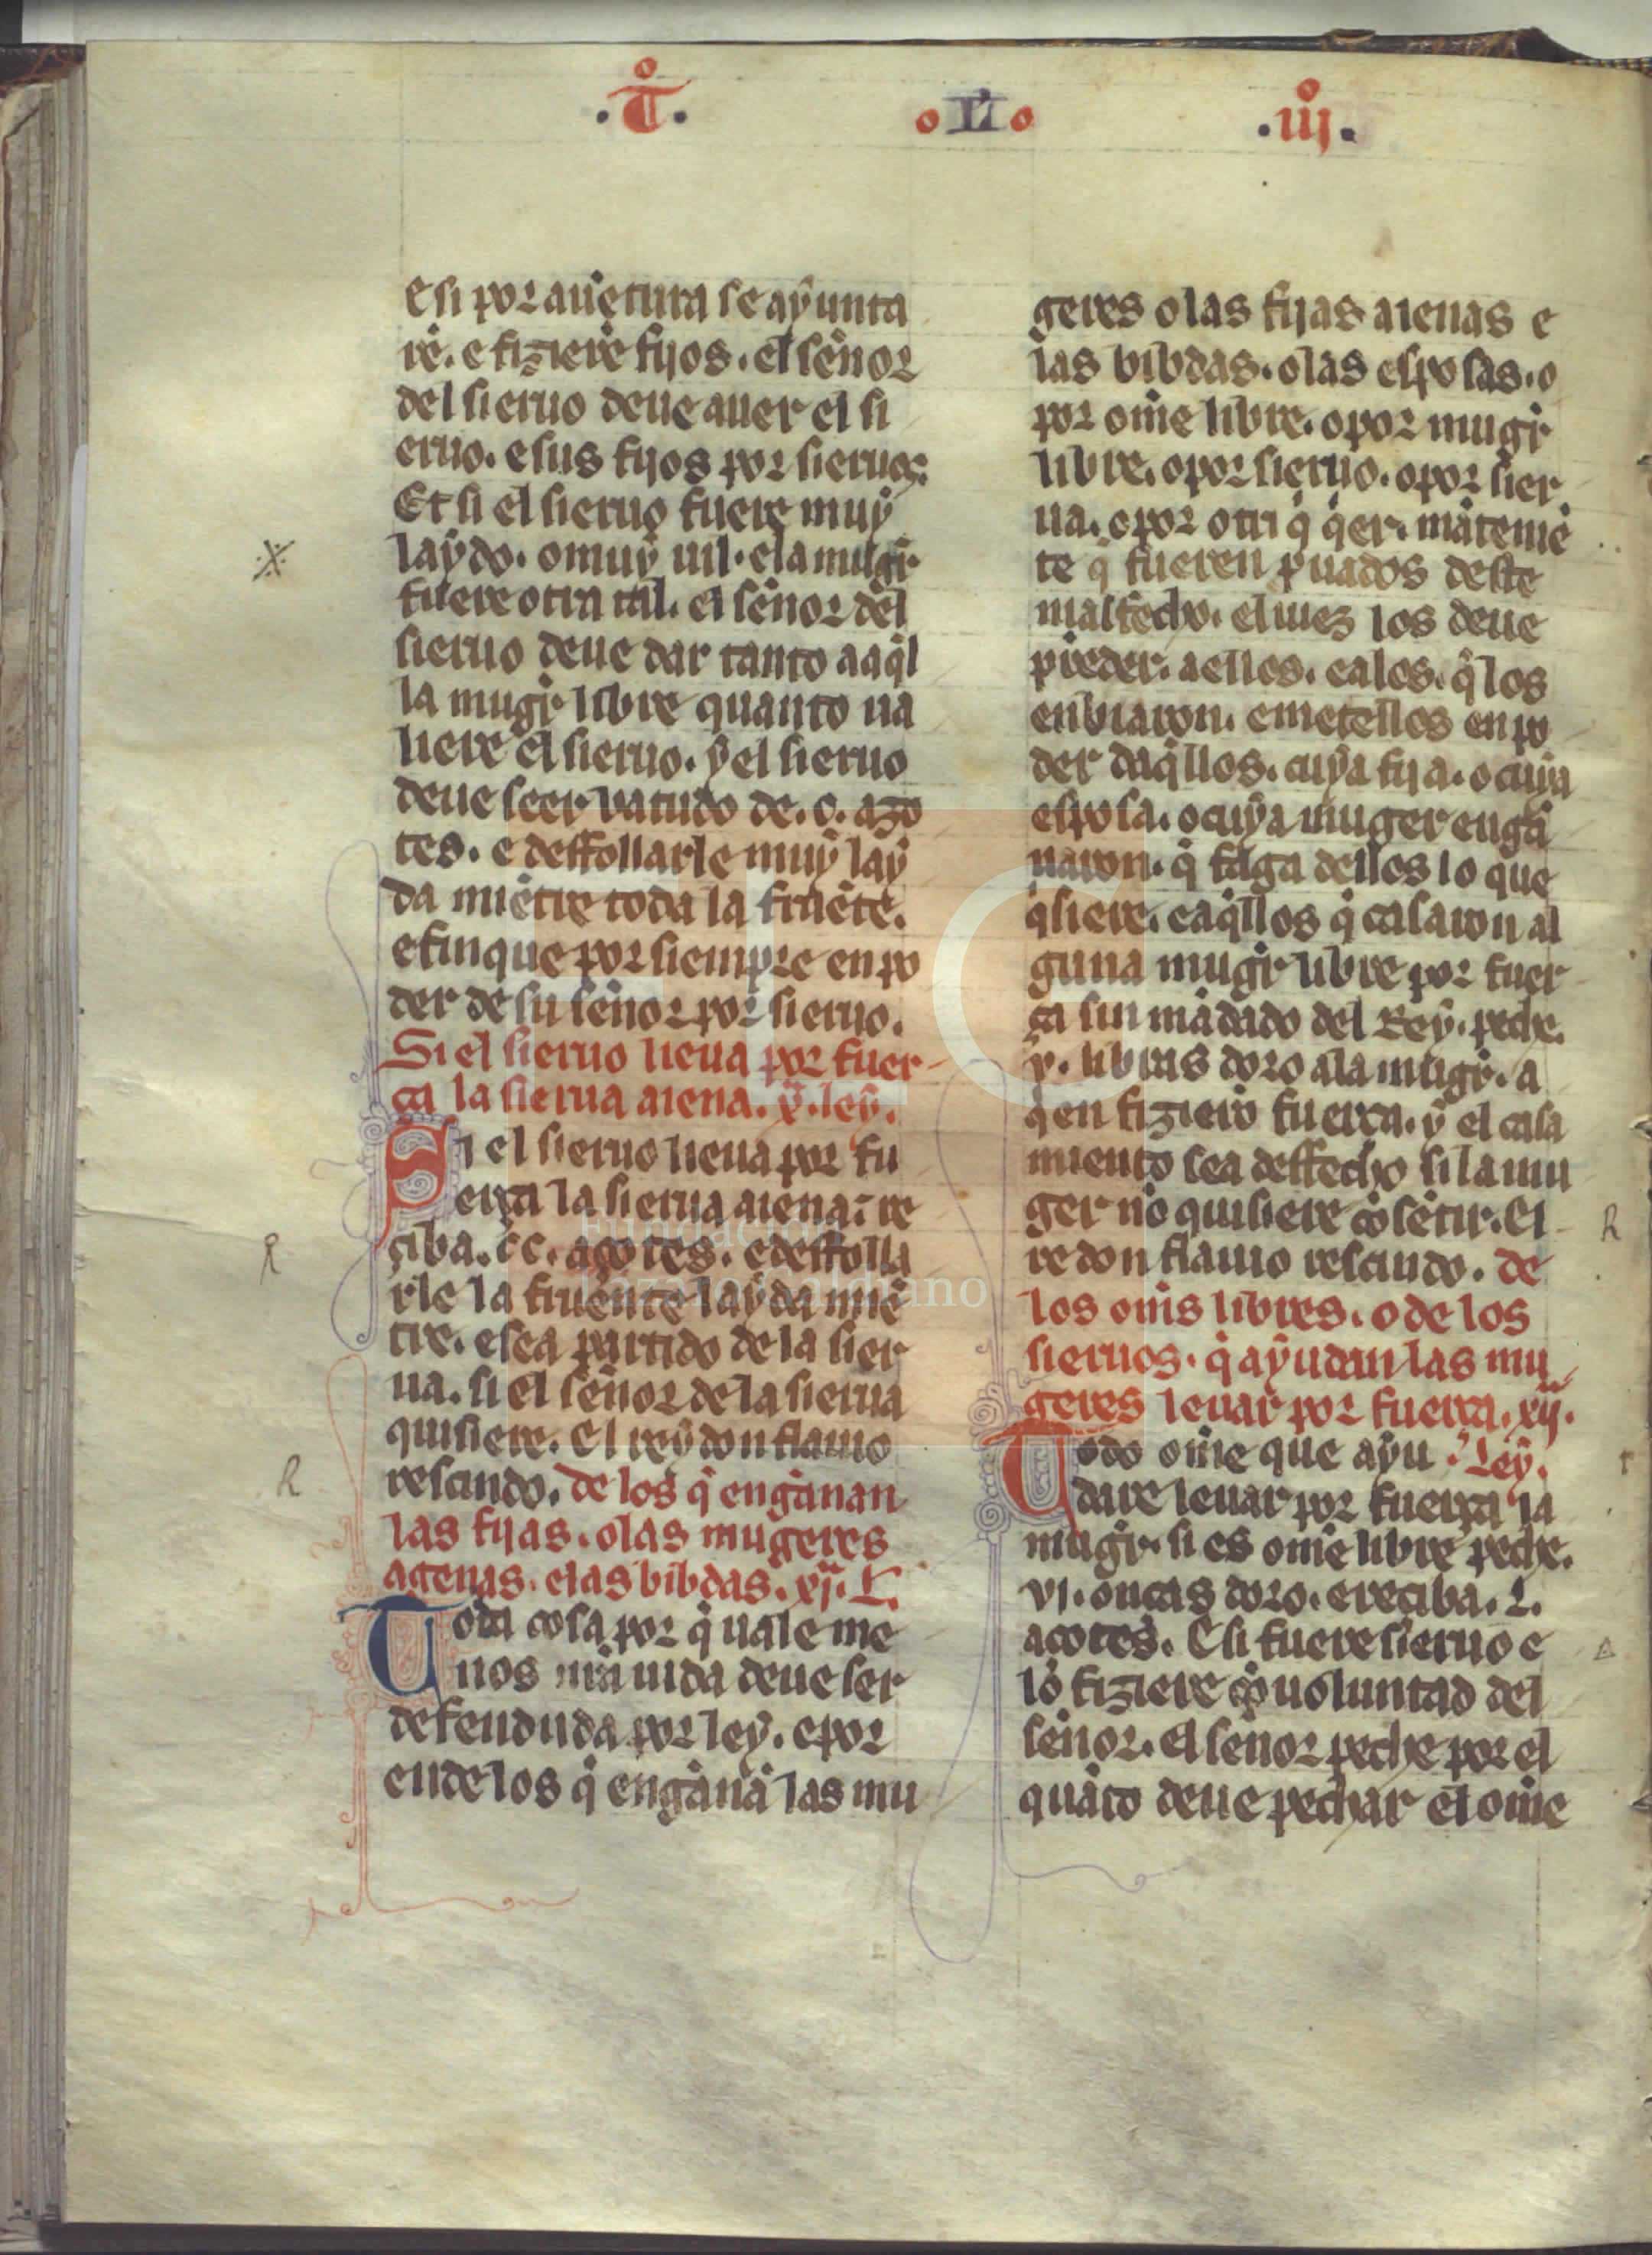 .T̊. .LI. .iij̊.
e si por auẽtura se aẏunta
rẽ. e fizierẽ fijos. el señor
del sieruo deue auer el si
eruo. e sus fijos por sieruos.
Et si el sieruo fuere muẏ
laẏdo. o muẏ uil. e la mugr̃
fuere otra tal. el señor del
sieruo deue dar tanto a aq̃l
la mugr̃ libre quanto ua
liere el sieruo. ẏ el sieruo
deue seer batudo de. c. azo
tes. e deffollarle muẏ laẏ
da miẽtre toda la fruẽte.
e finque por siempre en po
der de su señor por sieruo.
Si el sieruo lieua por fuer
ça la sierua aiena. x̊. leẏ.
Si el sieruo lieua por fu
erça la sierua aiena: re
çiba. cc. açotes. e deffolla
rle la fruente laẏda miẽ
tre. e sea partido de la sier
ua. si el señor de la sierua
quisiere. El reẏ don flauio
rescindo. de los q̃ engãnan
las fijas. o las mugeres
agenas. e las bibdas. xj̊. L.
Toda cosa por q̃ uale me
nos nr̃a uida deue ser
defenduda por leẏ. e por
ende los q̃ engãnã las mu
geres o las fijas aienas e
las bibdas. o las esposas. o
por om̃e libre. o por mugr̃
libre. o por sieruo. o por sier
ua. o por otri q̃ q̃er. mãtenie
te q̃ fueren p̃uados deste
mal fecho. el iuez los deue
p̃nder. a ellos. e a los. q̃ los
enbiaron. e metellos en po
der daq̃llos. cuẏa fija. o cuẏa
esposa. o cuẏa muger engã
naron. q̃ faga dellos lo que
q̃siere. e aq̃llos q̃ casaron al
guna mugr̃ libre por fuer
ça sin mãdado del Reẏ. peche.
v. libras doro a la mugr̃. a
q̃en fizierõ fuerça. ẏ el casa
miento sea deffecho si la mu
ger nõ quisiere cõsẽtir. El
re don flauio rescindo. de
los om̃s libres. o de los
sieruos. q̃ aẏudan las mu
geres leuar por fuerça. xij̊.
Todo om̃e que aẏu leẏ.
dare leuar por fuerça la
mugr̃. si es om̃e libre peche.
vi. onças doro. e reciba. L.
açotes. E si fuere sieruo e
lo fiziere cõ uoluntad del
señor. el señor peche por el
quãto deue pechar el om̃e
Fundación
Lázaro Galdiano